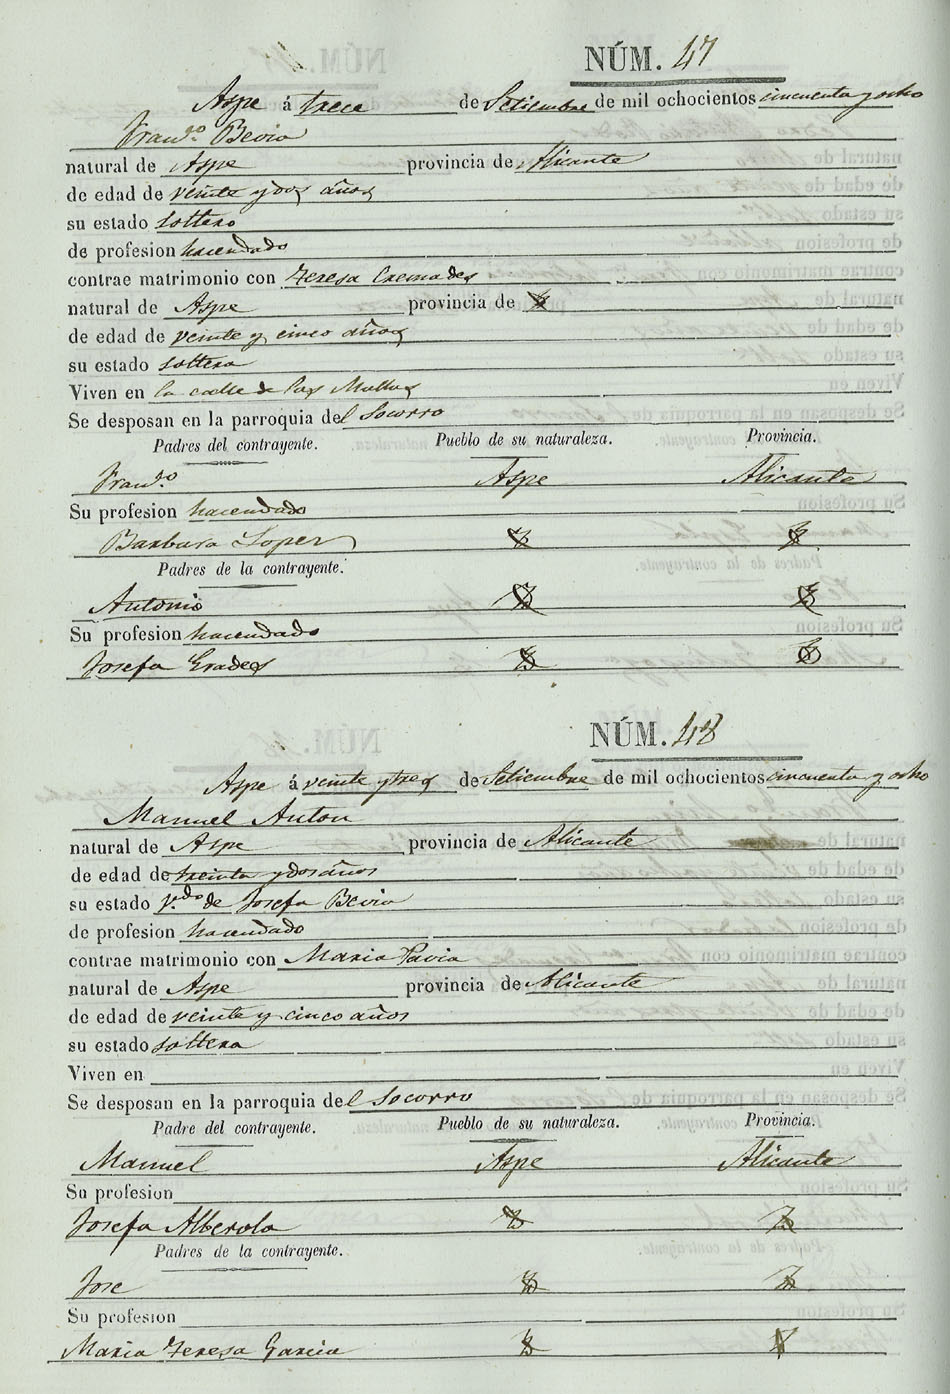 NÚM. 47
Aspe á trece de Setiembre de mil ochocientos cincuenta y ocho
Franco. Bevia
natural de Aspe provincia de Alicante
de edad de veinte y dos años
su estado soltero
de profesion hacendado
contrae matrimonio con Teresa Cremades
natural de Aspe provincia de
de edad de veinte y cinco años
su estado soltera
Viven en la calle de las
Se desposan en la parroquia del Socorro
Padres del contrayente. Pueblo de su naturaleza. Provincia.
Franco. Aspe Alicante
Su profesion hacendado
Barbara Lopez
Padres de la contrayente.
Antonio
Su profesion hacendado
Josefa
NÚM. 48
Aspe á veinte y tres de Setiembre de mil ochocientos cincuenta y ocho
Manuel Anton
natural de Aspe provincia de Alicante
de edad de treinta y dos años
su estado v.do de Josefa Bevia
de profesion hacendado
contrae matrimonio con Maria Pavia
natural de Aspe provincia de Alicante
de edad de veinte y cinco años
su estado soltera
Viven en
Se desposan en la parroquia del Socorro
Padre del contrayente. Pueblo de su naturaleza. Provincia.
Manuel Aspe Alicante
Su profesion
Josefa Alberola
Padres de la contrayente.
Jose
Su profesion
Maria Teresa Garcia